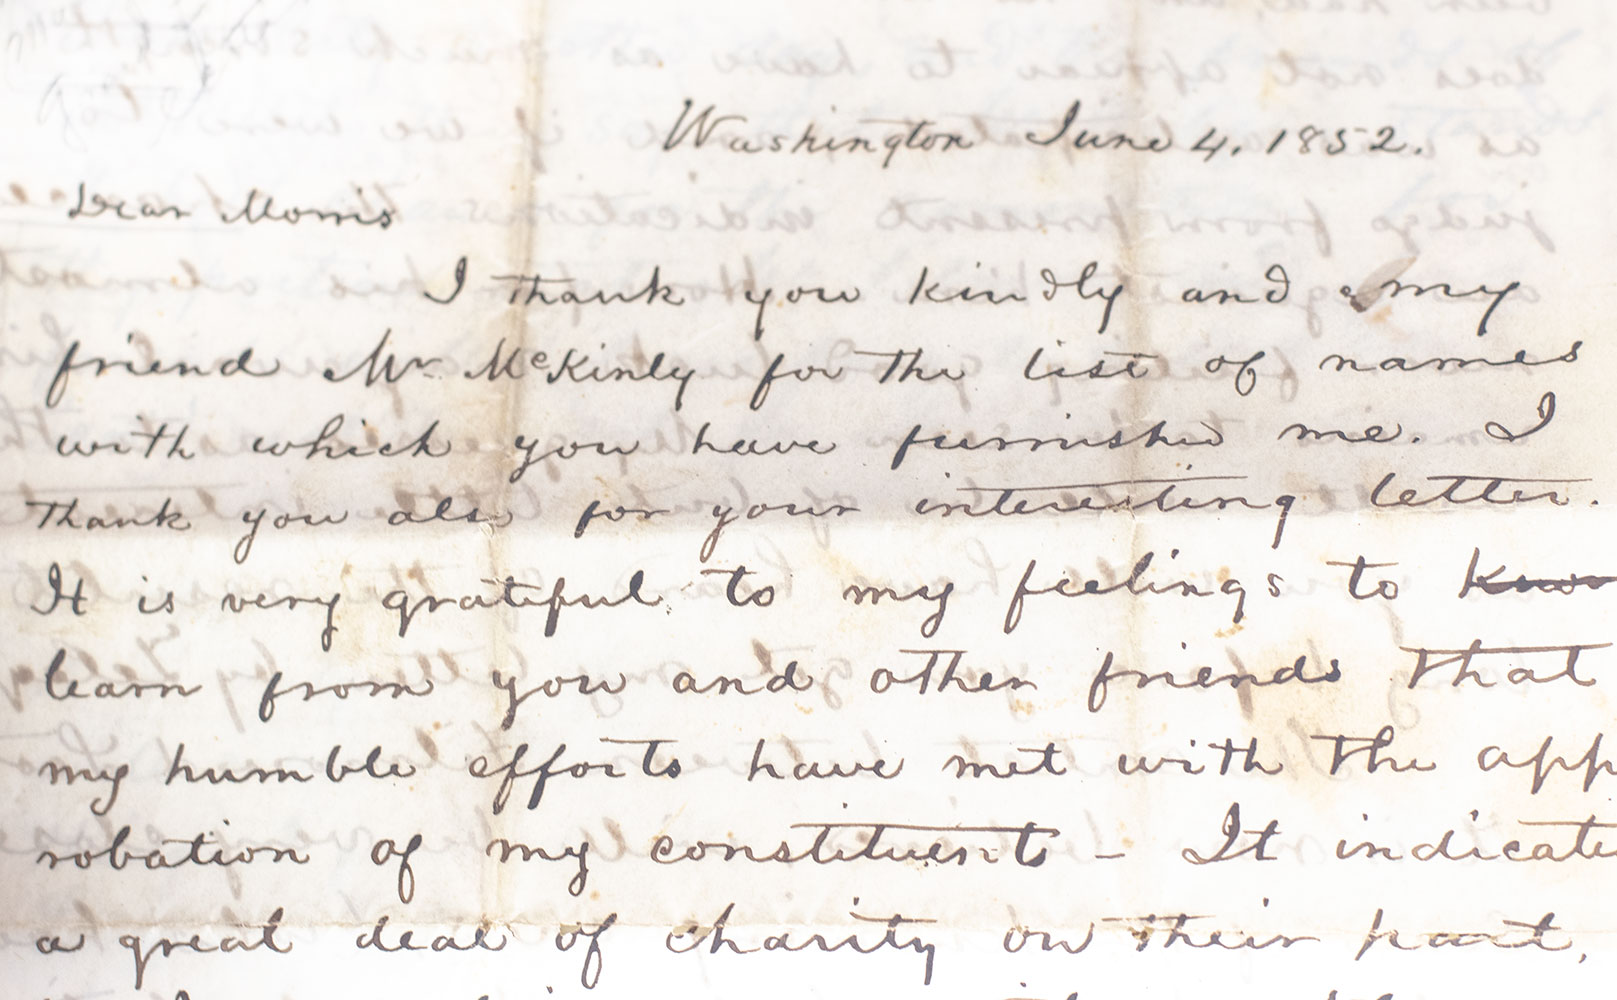 Washington June 4. 1852.
Dear Morris
I thank you kindly and my
friend Mr McKinly for the list of names
with which you have furnished me. I
thank you also for your interesting letter.
It is very grateful to my feelings to know
learn from you and other friends that
my humble efforts have met with the app
robation of my constituents – It indicate
a great deal of charity on their part,